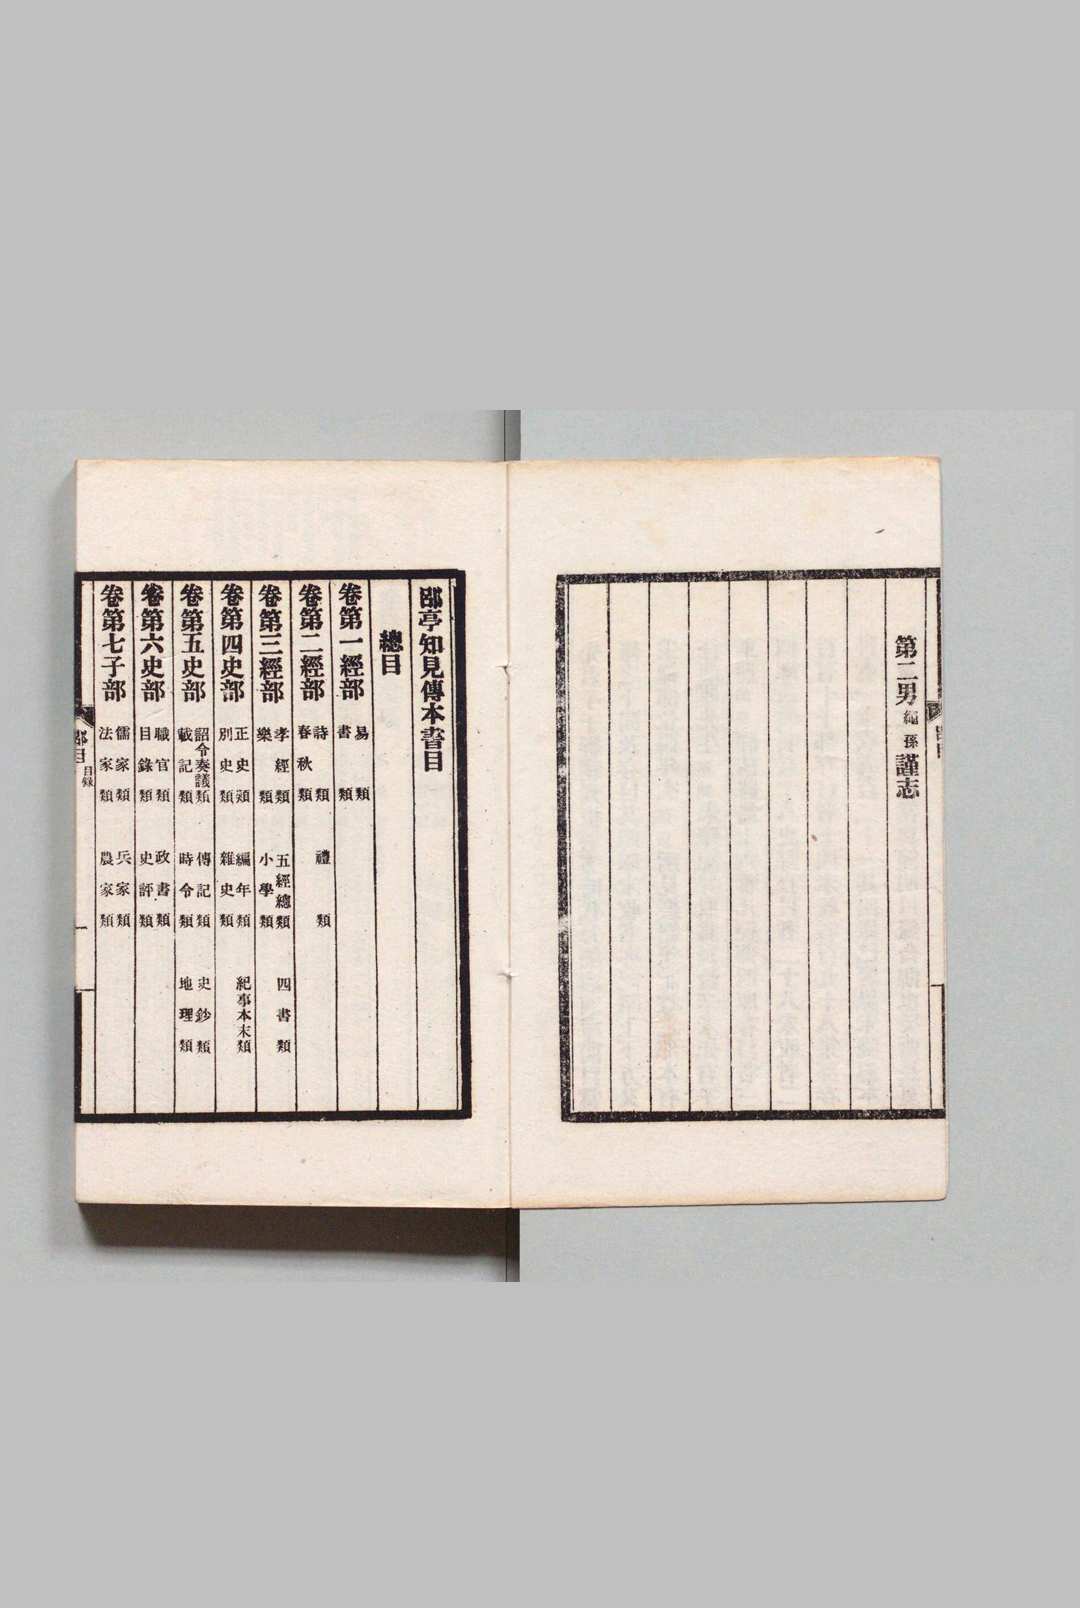 第二男繩孫謹志
郘亭知見傳本書目
總目
卷第一經部 易類 書類
卷第二經部 詩類 禮類 春秋類
卷第三經部 孝經類 五經總類 四書類 樂類 小學類
卷第四史部 正史類 編年類 紀事本末類 別史類 雜史類
卷第五史部 詔令奏議類 傳記類 史鈔類 載記類 時令類 地理類
卷第六史部 職官類 政書類 目錄類 史評類
卷第七子部 儒家類 兵家類 法家類 農家類
郘目 目錄